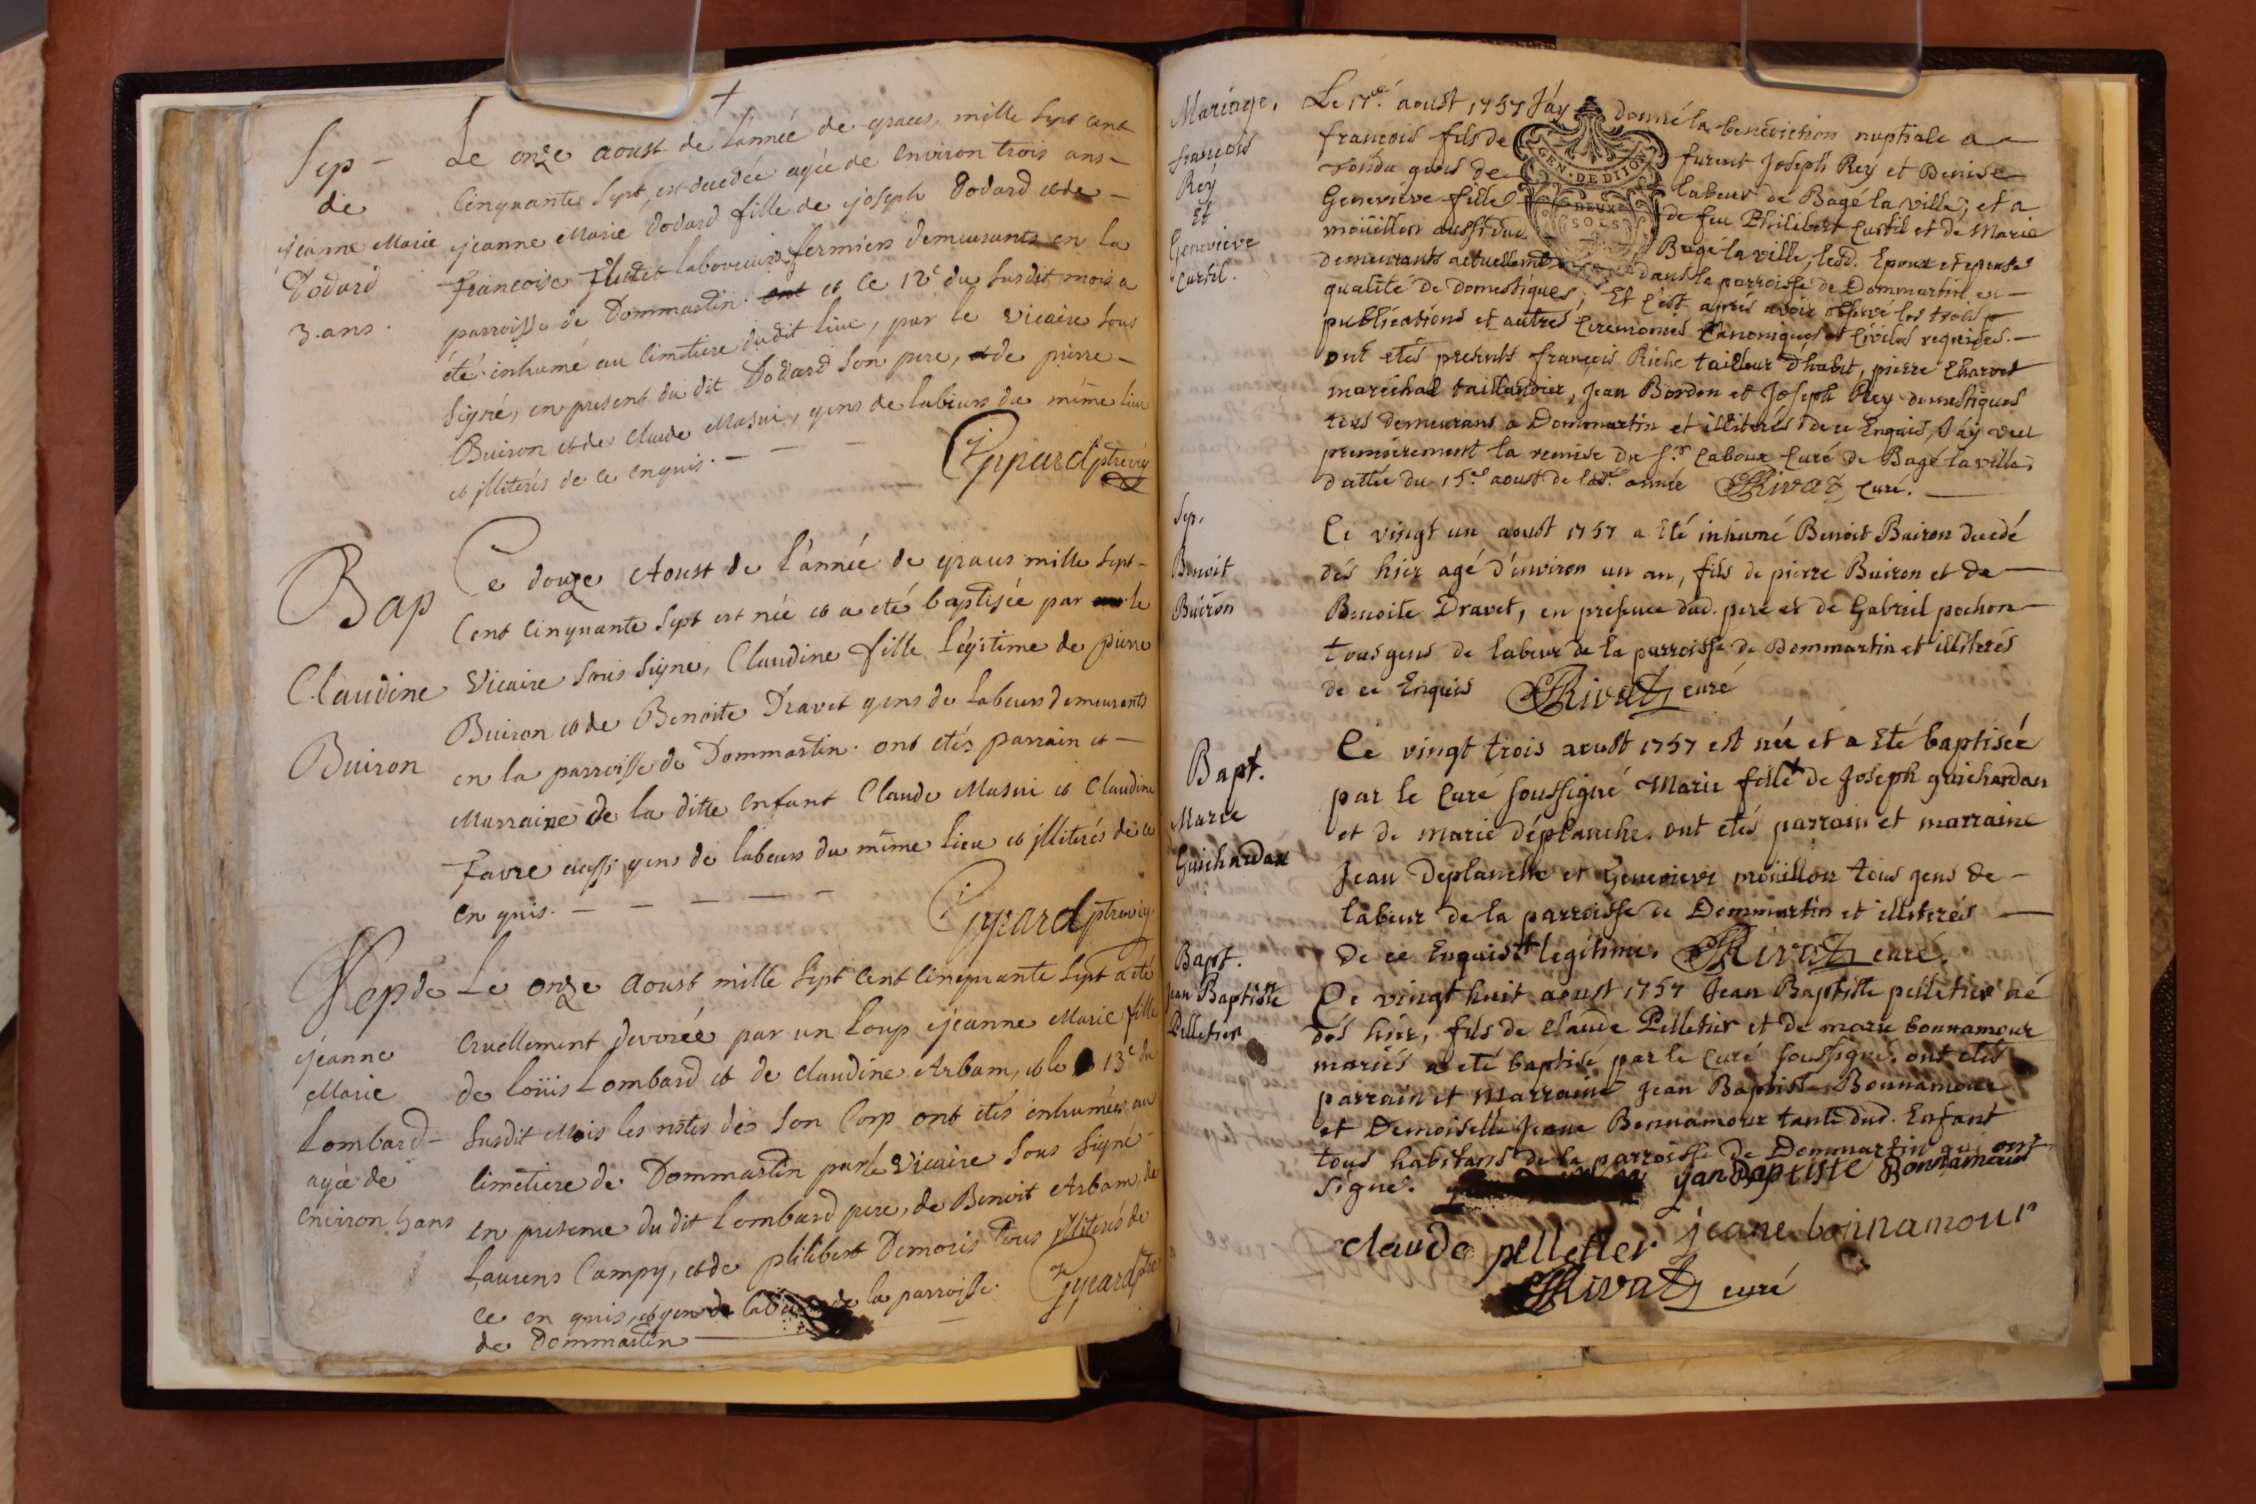 Sep -
de
jeanne Marie
Dodard
3. ans.
Le onze aoust de l'année de graces mille sept cent
Cinquante sept, est decedée agée de environ trois ans -
jeanne Marie Dodard fille de joseph Dodard et de -
francoise laboureurs fermiers demeurants en la
parroisse de Dommartin. et ce 12e du susdit mois a
été inhumé au cimetiere dudit lieu, par le vicaire sous
signé, en present du dit Dodard son pere, de pierre -
Buiron et de Claude Masui, gens de labeurs du même lieu
et illiterés de ce enquis. - - -
Bap
Claudine
Buiron
Ce douze Aoust de l'année de graces mille sept -
Cent Cinquante sept est née et a eté baptisée par le
Vicaire sous signé, Claudine fille légitime de pierre
Buiron et de Benoite Dravet gens de labeurs demeurants
en la parroisse de Dommartin. ont etés parrain et -
Marraine de la ditte enfant Claude Masui et Claudine
favre aussi gens de labeurs du même lieu et illiterés de ce
en quis. - - - - -
Sep de
jeanne
Marie
Lombard -
agée de
environ 5 ans
Le onze aoust mille sept cent cinquante sept a eté
Cruellement devorée par un Loup jeanne Marie fille
de Loüis Lombard et de Claudine Arbam, et le 13e du
susdit Mois les restes de son Corp ont etés inhumées au
cimetiere de Dommartin par le Vicaire sous signé -
en presence du dit Lombard pere, de Benoit Arbam, de
Laurens Campy, et de philibert Demoris tous illiterés de
ce en quis, et gens de labeurs de la parroisse.
de Dommartin
Mariage,
françois
Rey
Et
Genevieve
Curtil.
GEN. DE DIJON
DEUX
SOLS
Le 17e. aoust 1757 J'ay donné la benediction nuptiale a
françois fils de furent Joseph Rey et Denise
gens de labeur de Bagé la ville; et a
Genevieve fille de feu Philibert Curtil et de Marie
moüillon aussi dud. Bagé la ville, lesd. Epoux et epouse
demeurants actuellement dans la parroisse de Dommartin en
qualité de Domestiques; Et c'est après avoir observé les trois
publications et autres Ceremonies Canoniques et Civiles requises. -
ont etés presents françois Riche tailleur D'habit, pierre Charvet
marechal taillandier, Jean Bordon et Joseph Rey domestiques
tous demeurans a Dommartin et illiterés de ce Enquis, J'ay veu
premierement la remise du Sr. Caboux Curé de Bagé la ville,
dattée du 15e. aoust de lad. année Rivat, Curé.
Sep.
Benoit
Buiron
Ce vingt un aoust 1757 a Eté inhumé Benoit Buiron decedé
dès hier agé d'environ un an, fils de pierre Buiron et de
Benoite Dravet, en presence dud. pere et de Gabriel pochon
tous gens de labeur de la parroisse de Dommartin et illiterés
de ce Enquis Rivat, curé
Bapt.
Marie
Guichardan
Ce vingt trois aoust 1757 est née et a Eté baptisée
par le Curé soussigné Marie fille + de Joseph guichardan
et de marie déplanche. ont etés parrain et marraine
Jean Deplanche et Genevieve moüillon tous gens de -
labeur de la parroisse de Dommartin et illiterés
de ce Enquis + legitime. Rivat, curé.
Bapt.
Jean Baptiste
Pelletier
Ce vingt huit aoust 1757 Jean Baptiste pelletier né
dès hier, fils de Claude Pelletier et de marie bonnamour
mariés a eté baptisé par le Curé soussigné. ont etés
parrain et marraine Jean Baptiste Bonnamour
et Demoiselle Jeanne Bonnamour tante dud. Enfant
tous habitans de la parroisse de Dommartin qui ont
signé. jan Baptiste Bonnamour
claude pelletier jeane bonnamour
Rivat, curé